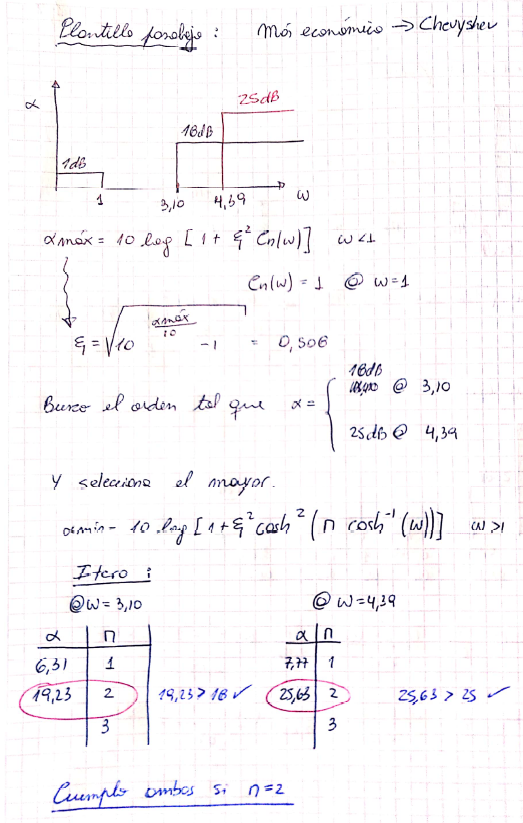 Plantilla pasabajo : Más económico → Chevyshev
α
25dB
18dB
1dB
1 3,10 4,39 ω
αmáx = 10 log [ 1 + ξ² Cn(ω)] ω<1
Cn(ω) = 1 @ ω=1
ξ = √(10^(αmáx/10) - 1) = 0,506
Busco el orden tal que α = { 18dB @ 3,10
25dB @ 4,39
Y selecciono el mayor.
αmin = 10 log [ 1 + ξ² cosh² ( n cosh⁻¹ (ω))] ω>1
Itero :
@ω = 3,10 @ ω=4,39
α n α n
6,31 1 7,77 1
19,23 2 19,23 > 18 ✓ 25,63 2 25,63 > 25 ✓
3 3
Cumplo ambos si n=2